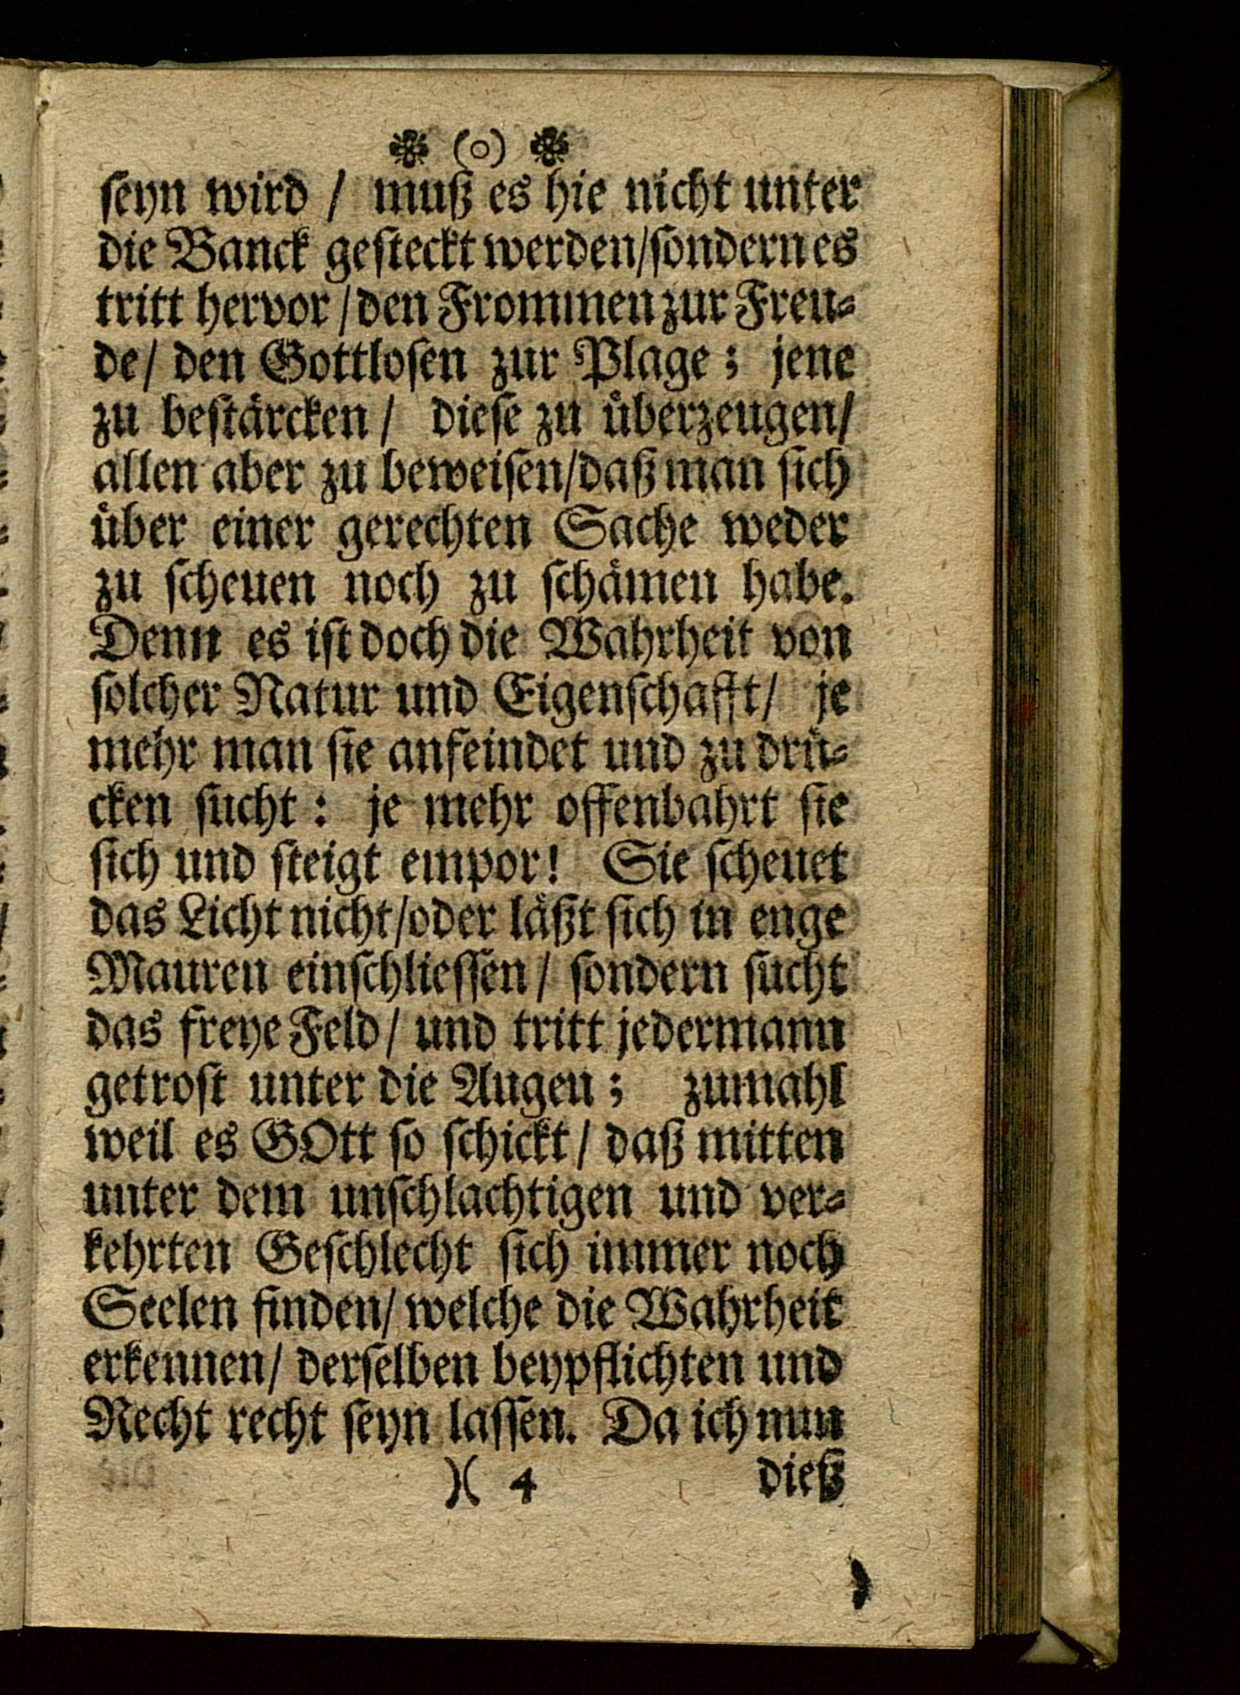 ❀ (o) ❀
ſeyn wird / muß es hie nicht unter
die Banck geſteckt werden/ſondern es
tritt hervor /den Frommen zur Freu⸗
de/ den Gottloſen zur Plage; jene
zu beſtärcken/ dieſe zu überzeugen/
allen aber zu beweiſen/daß man ſich
über einer gerechten Sache weder
zu ſcheuen noch zu ſchämen habe.
Denn es iſt doch die Wahrheit von
ſolcher Natur und Eigenſchafft/ je
mehr man ſie anfeindet und zu drü⸗
cken ſucht: je mehr offenbahrt ſie
ſich und ſteigt empor! Sie ſcheuet
das Licht nicht/oder läßt ſich in enge
Mauren einſchlieſſen/ ſondern ſucht
das freye Feld/ und tritt jedermann
getroſt unter die Augen; zumahl
weil es GOtt ſo ſchickt/ daß mitten
unter dem unſchlachtigen und ver⸗
kehrten Geſchlecht ſich immer noch
Seelen finden/ welche die Wahrheit
erkennen/ derſelben beypflichten und
Recht recht ſeyn laſſen. Da ich nun
)( 4 dieß